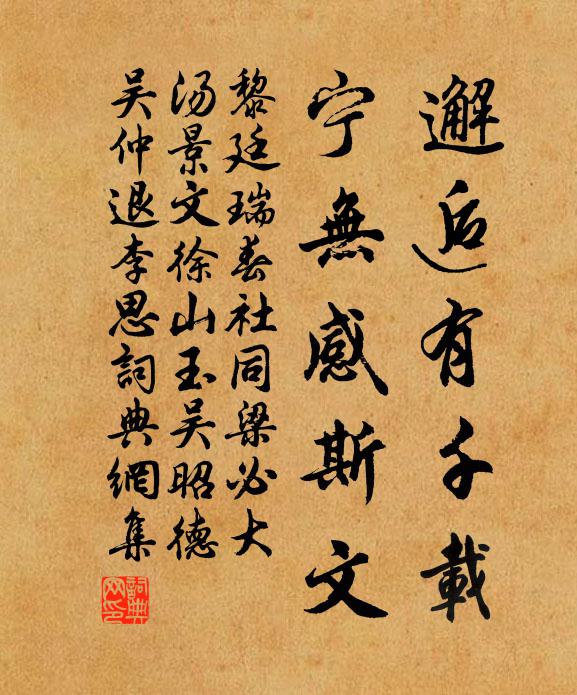 邂逅有千載
宁無感斯文
黎廷瑞春社同梁必大
湯景文徐山玉吴昭德
吴仲退李思詞典網集
詞典
网印